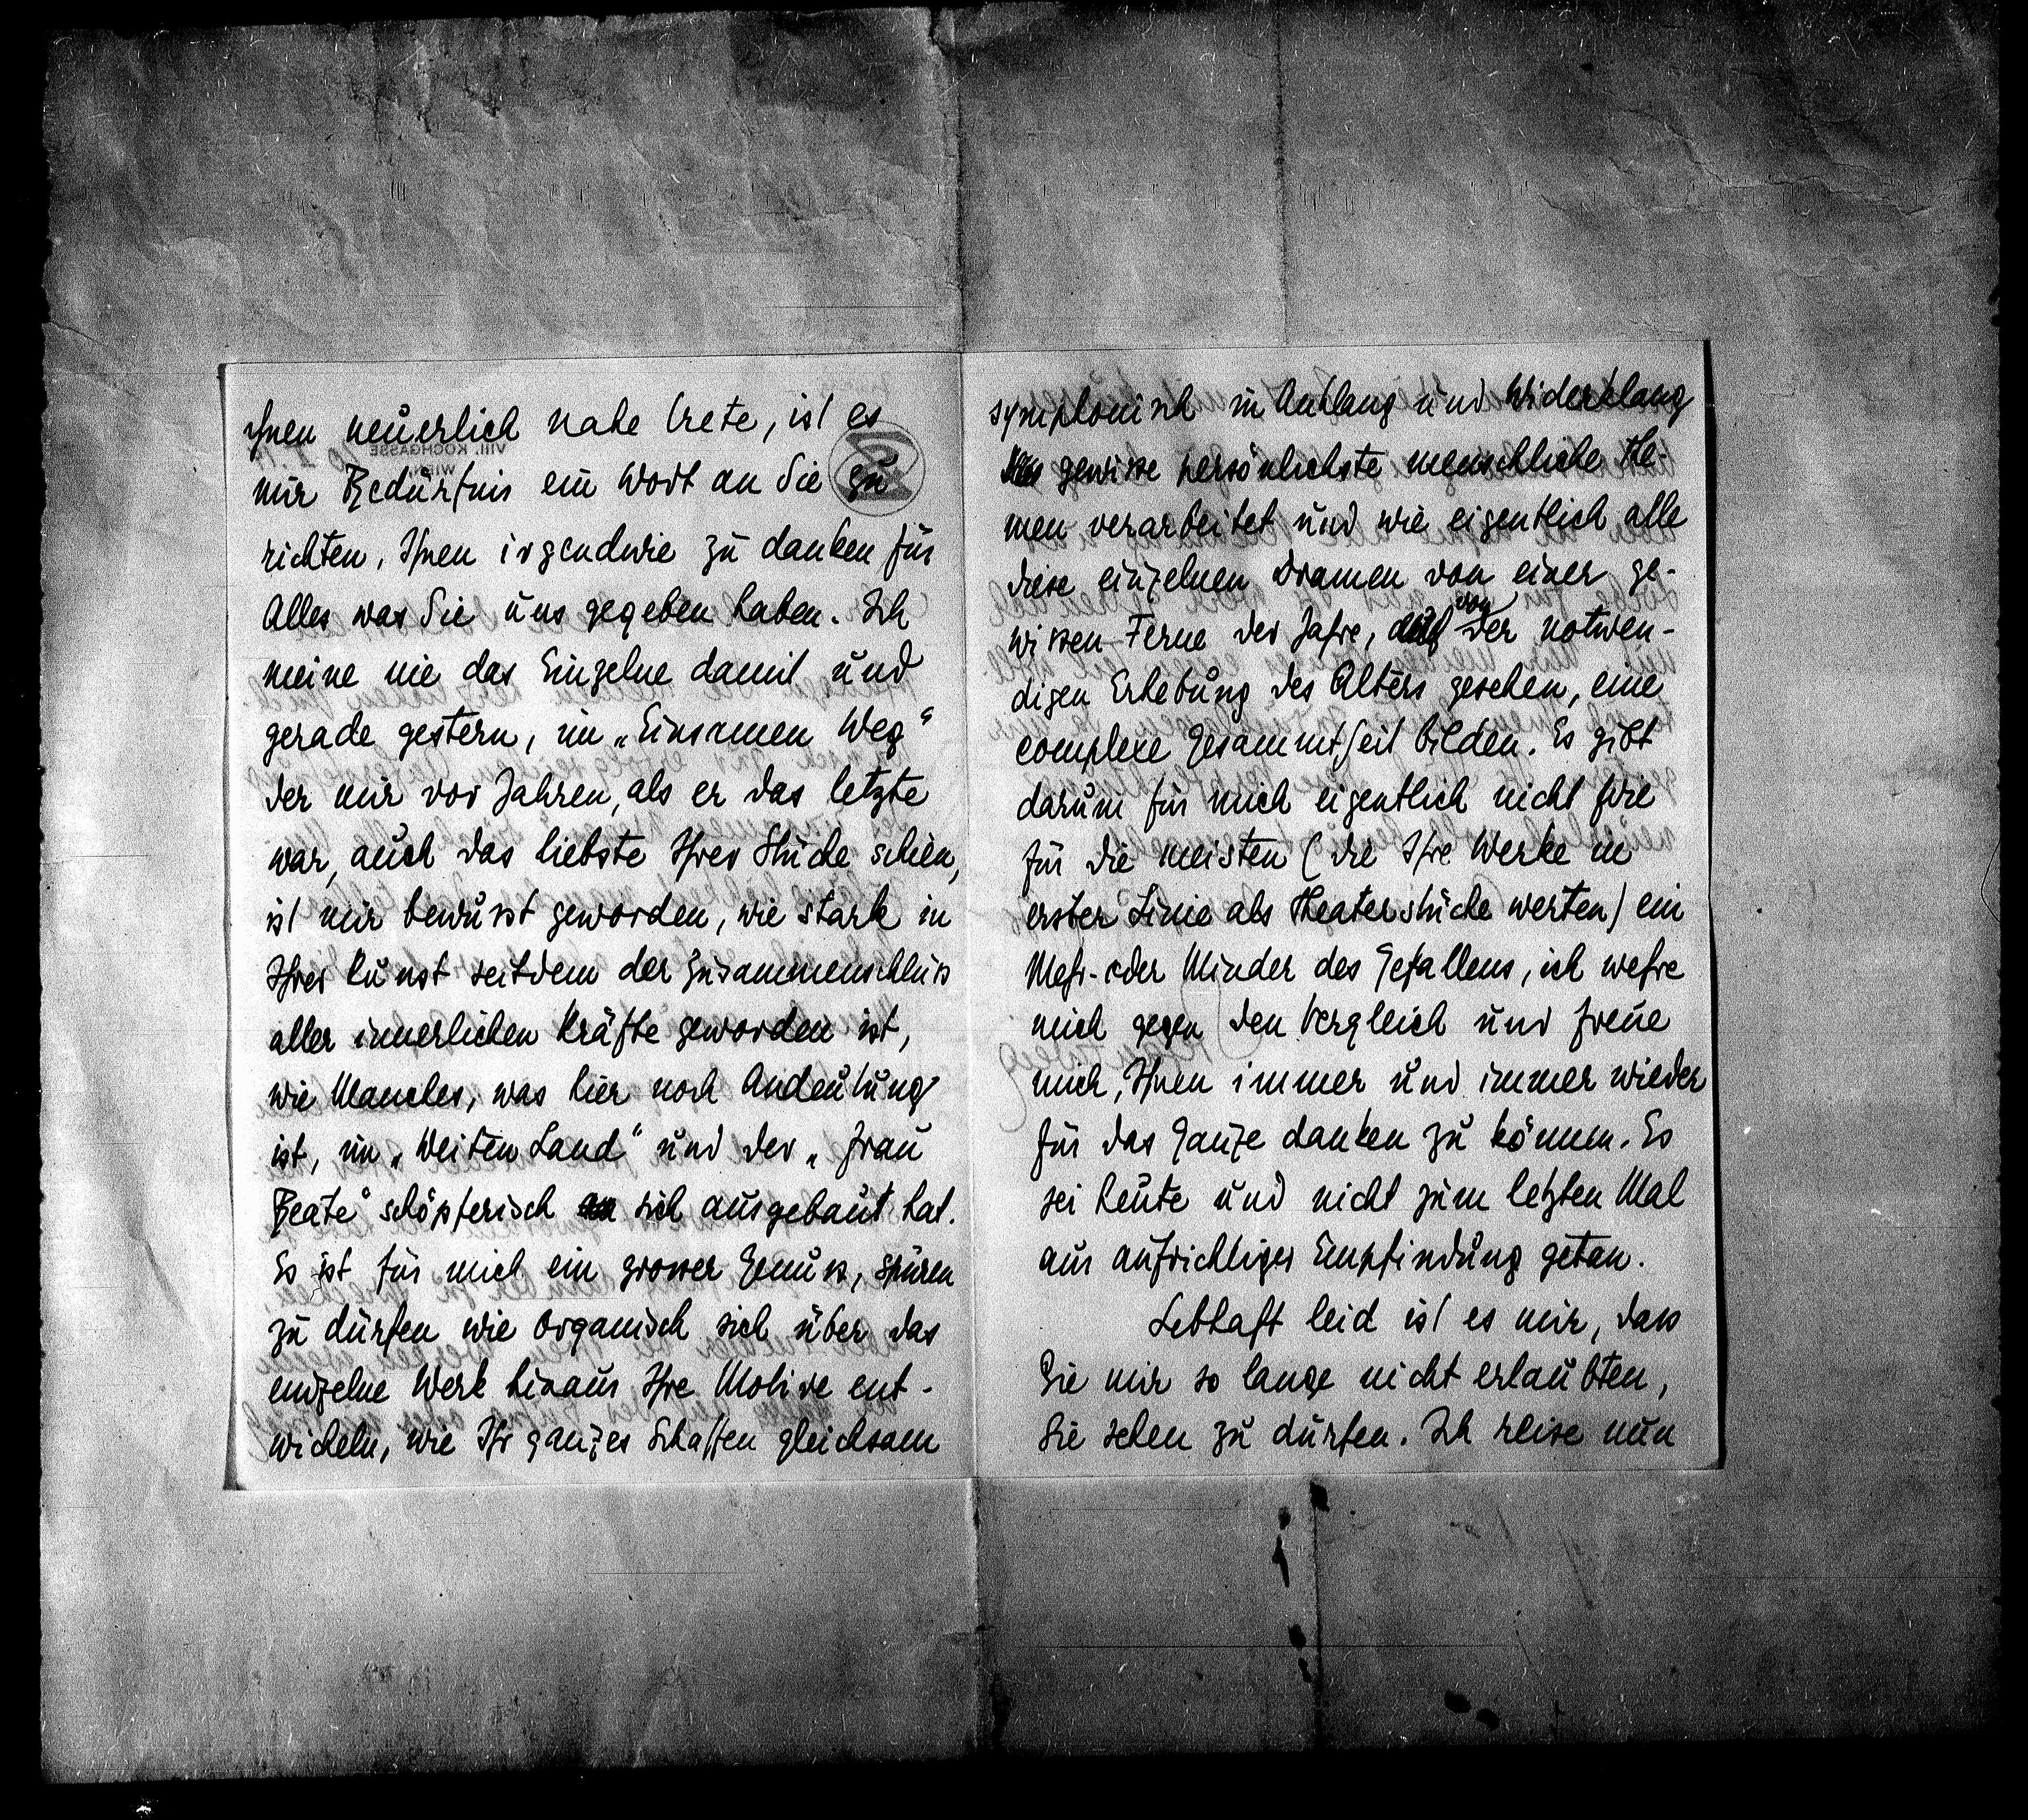 Ihnen neuerlich nahe trete, ist es
mir Bedürfnis ein Wort an Sie zu
richten, Ihnen irgendwie zu danken für
Alles was Sie uns gegeben haben. Ich
meine nie das Einzelne damit und
gerade gestern, im „Einsamen Weg“
der mir vor Jahren, als er das letzte
war, auch das liebste Ihrer Stücke schien,
ist mir bewusst geworden, wie stark in
Ihrer Kunst seitdem der Zusammenschluss
aller innerlichen Kräfte geworden ist,
wie Manches, was hier noch Andeutung
ist, im „Weiten Land“ und der „Frau
Beate“ schöpferisch sich ausgebaut hat.
Es ist für mich ein grosser Genuss, spüren
zu dürfen wie organisch sich über das
einzelne Werk hinaus Ihre Motive ent-
wickeln, wie Ihr ganzes Schaffen gleichsam
symphonisch in Anklang und Widerklang
gewisse persönlichste menschliche The-
men verarbeitet und wie eigentlich alle
diese einzelnen Dramen von einer ge-
wissen Ferne der Jahre, von der notwen-
digen Erhebung des Alters gesehen, eine
complexe Gesammtheit bilden. Es gibt
darum für mich eigentlich nicht wie
für die meisten (die Ihre Werke in
erster Linie als Theaterstücke werten) ein
Mehr- oder Minder des Gefallens, ich wehre
mich gegen den Vergleich und freue
mich, Ihnen immer und immer wieder
für das Ganze danken zu können. Es
sei heute und nicht zum letzten Mal
aus aufrichtiger Empfindung getan.
Lebhaft leid ist es mir, dass
Sie mir so lange nicht erlaubten,
Sie sehen zu dürfen. Ich reise nun
VIII. KOCHGASSE
WIEN